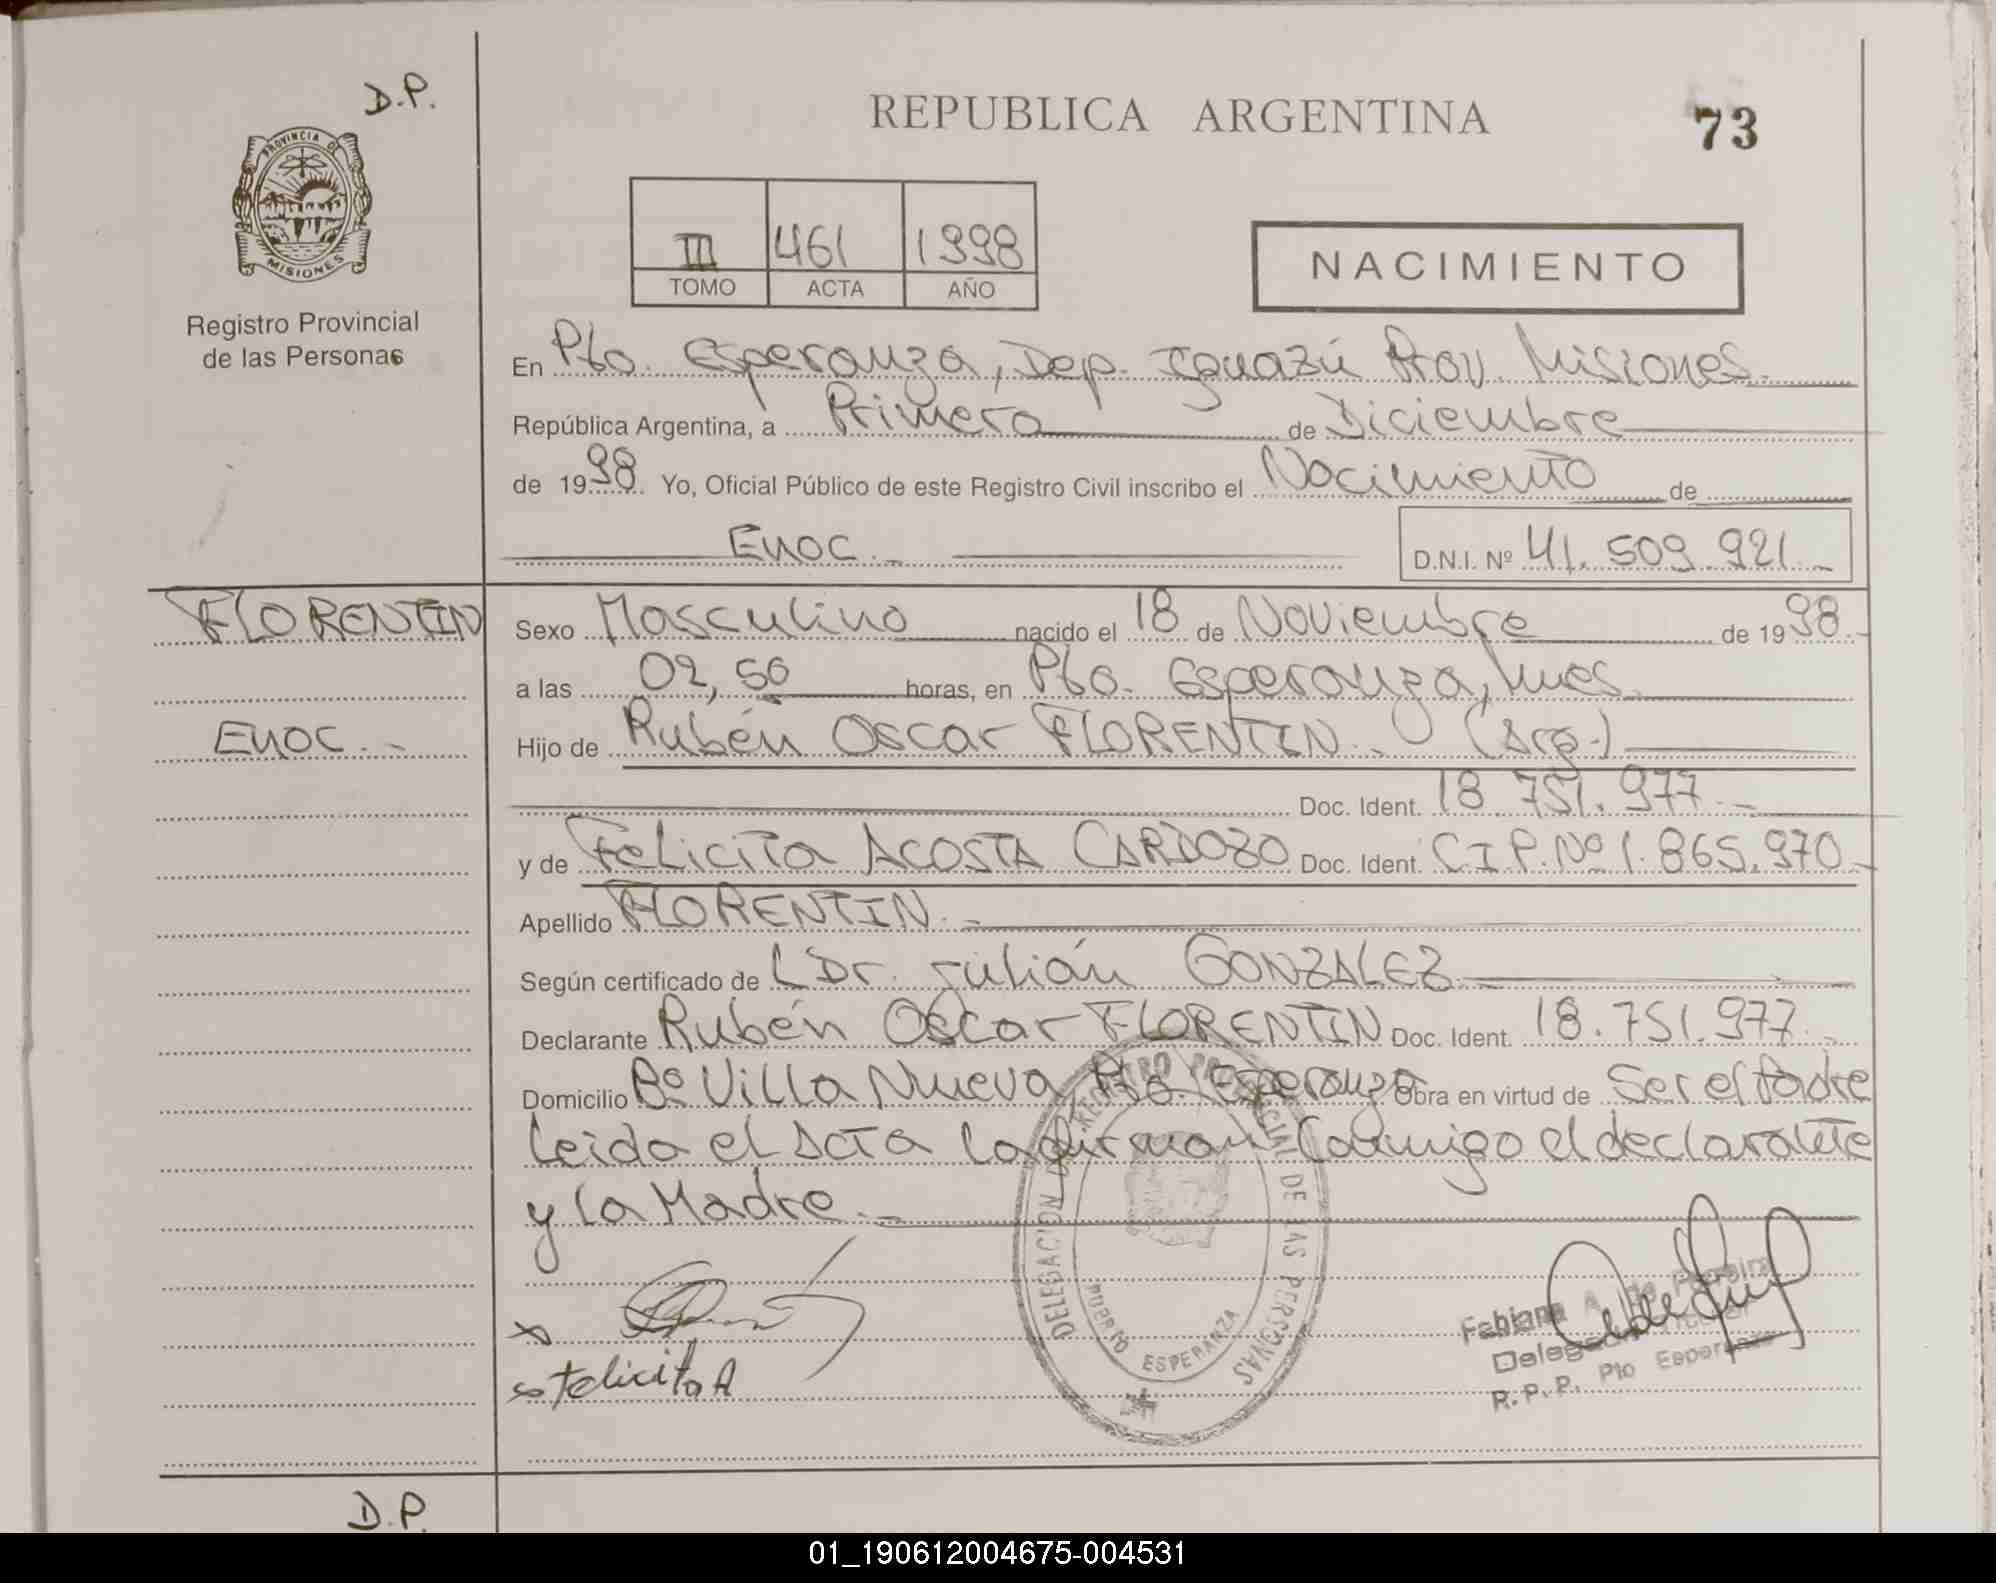 D.P.
REPUBLICA ARGENTINA
73
PROVINCIA DE
MISIONES
Registro Provincial
de las Personas
III 461 1998
TOMO ACTA AÑO
NACIMIENTO
En Pto. Esperanza, Dep. Iguazú Prov. Misiones.
República Argentina, a Primero de Diciembre
de 1998. Yo, Oficial Público de este Registro Civil inscribo el Nacimiento de
Enoc.- D.N.I. Nº 41.509.921.-
FLORENTIN Sexo Masculino nacido el 18 de Noviembre de 1998.-
a las 02,50 horas, en Pto. Esperanza, Mnes.
Enoc.- Hijo de Rubén Oscar FLORENTIN.- (Arg.)
Doc. Ident. 18.751.977.-
y de Felicita ACOSTA CARDOZO Doc. Ident. C.I.P.Nº 1.865.970.-
Apellido FLORENTIN.-
Según certificado de L Dr. Julián GONZALEZ
Declarante Rubén Oscar FLORENTIN Doc. Ident. 18.751.977.-
Domicilio Bº Villa Nueva, Pto. Esperanza Obra en virtud de Ser el Padre
Leida el Acta la firman Conmigo el declarante
y la Madre.-
DELEGACION REGISTRO PROVINCIAL DE LAS PERSONAS
PUERTO ESPERANZA
x
x Felicita A
Fabiana A. de Ferreira
R.P.P. Pto Esperanza
D.P.
01_190612004675-004531